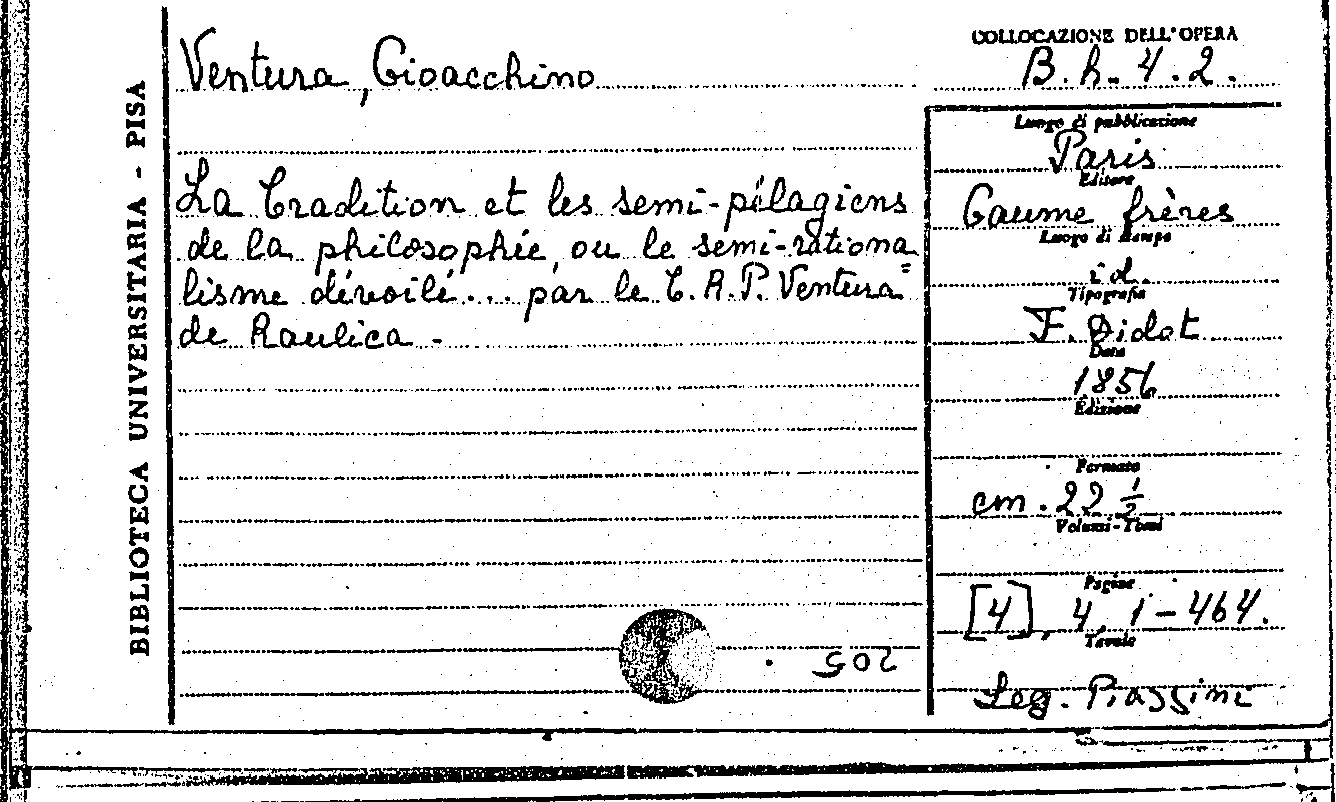 BIBLIOTECA UNIVERSITARIA - PISA
Ventura, Gioacchino
La Tradition et les semi-pélagiens
de la philosophie, ou le semi-rationa=
lisme dévoilé... par le T. R. P. Ventura
de Raulica -
205
COLLOCAZIONE DELL'OPERA
B. h. 4. 2.
Luogo di pubblicazione
Paris
Editore
Gaume frères
Luogo di stampa
id.
Tipografia
F. Didot
Data
1856
Edizione
Formato
cm. 22 1/2
Volumi - Tomi
Pagine
[4], 4, 1-464.
Tavole
Leg. Piazzini